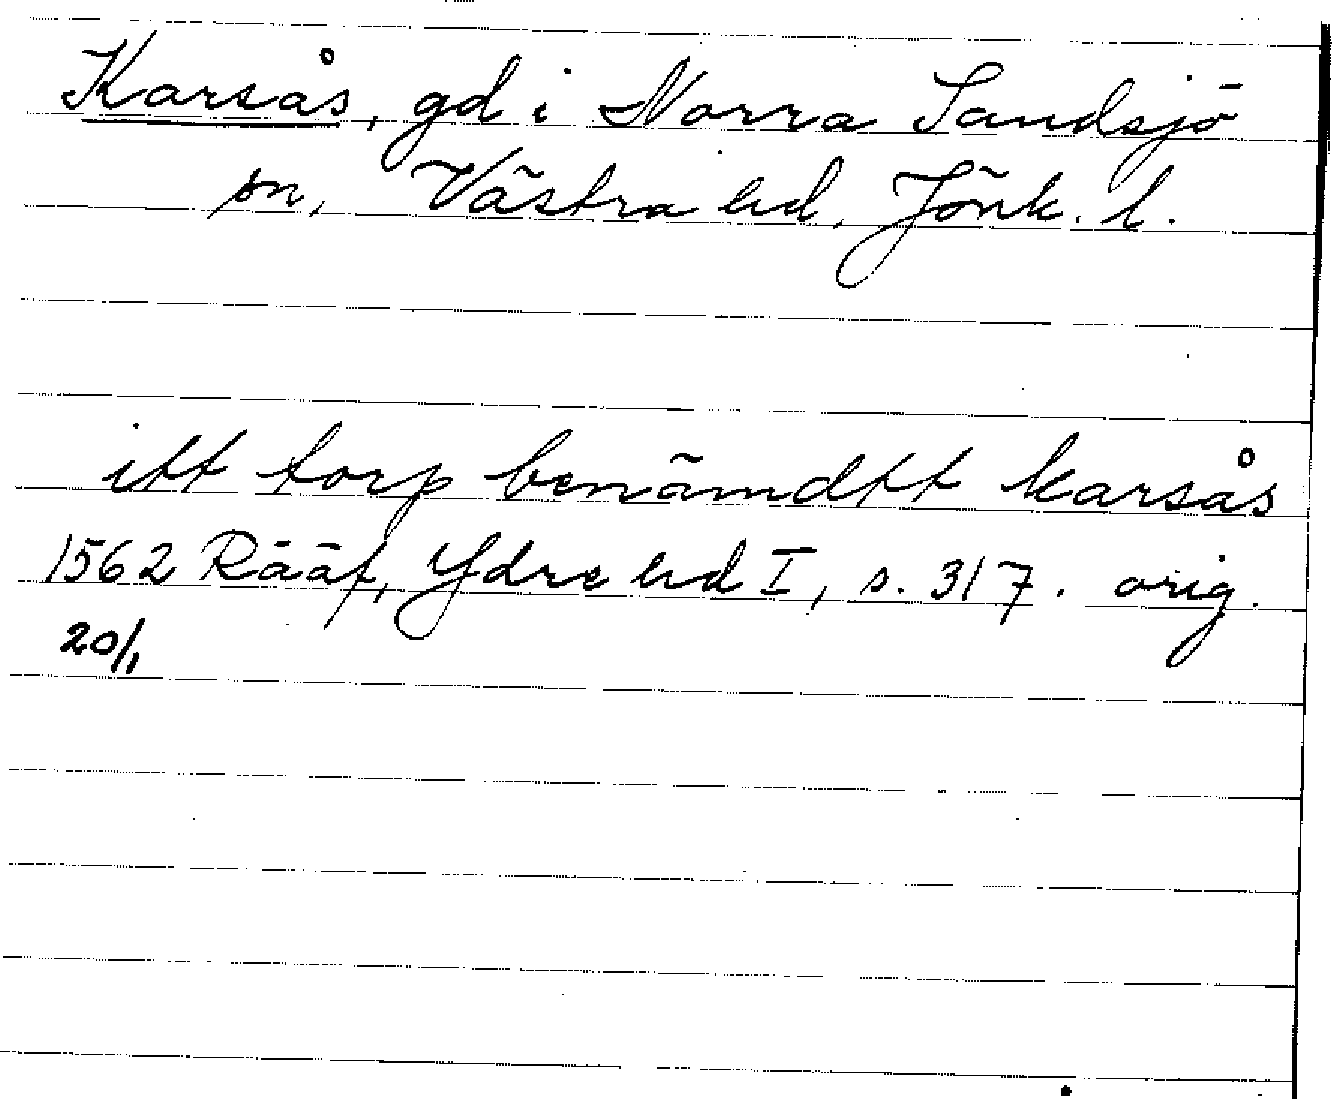 Karsås, gd i Norra Sandsjö
sn, Västra hd, Jönk. l.
itt torp benämdtt karsås
1562 Rääf, Ydre hd I, s. 317. orig.
20/1